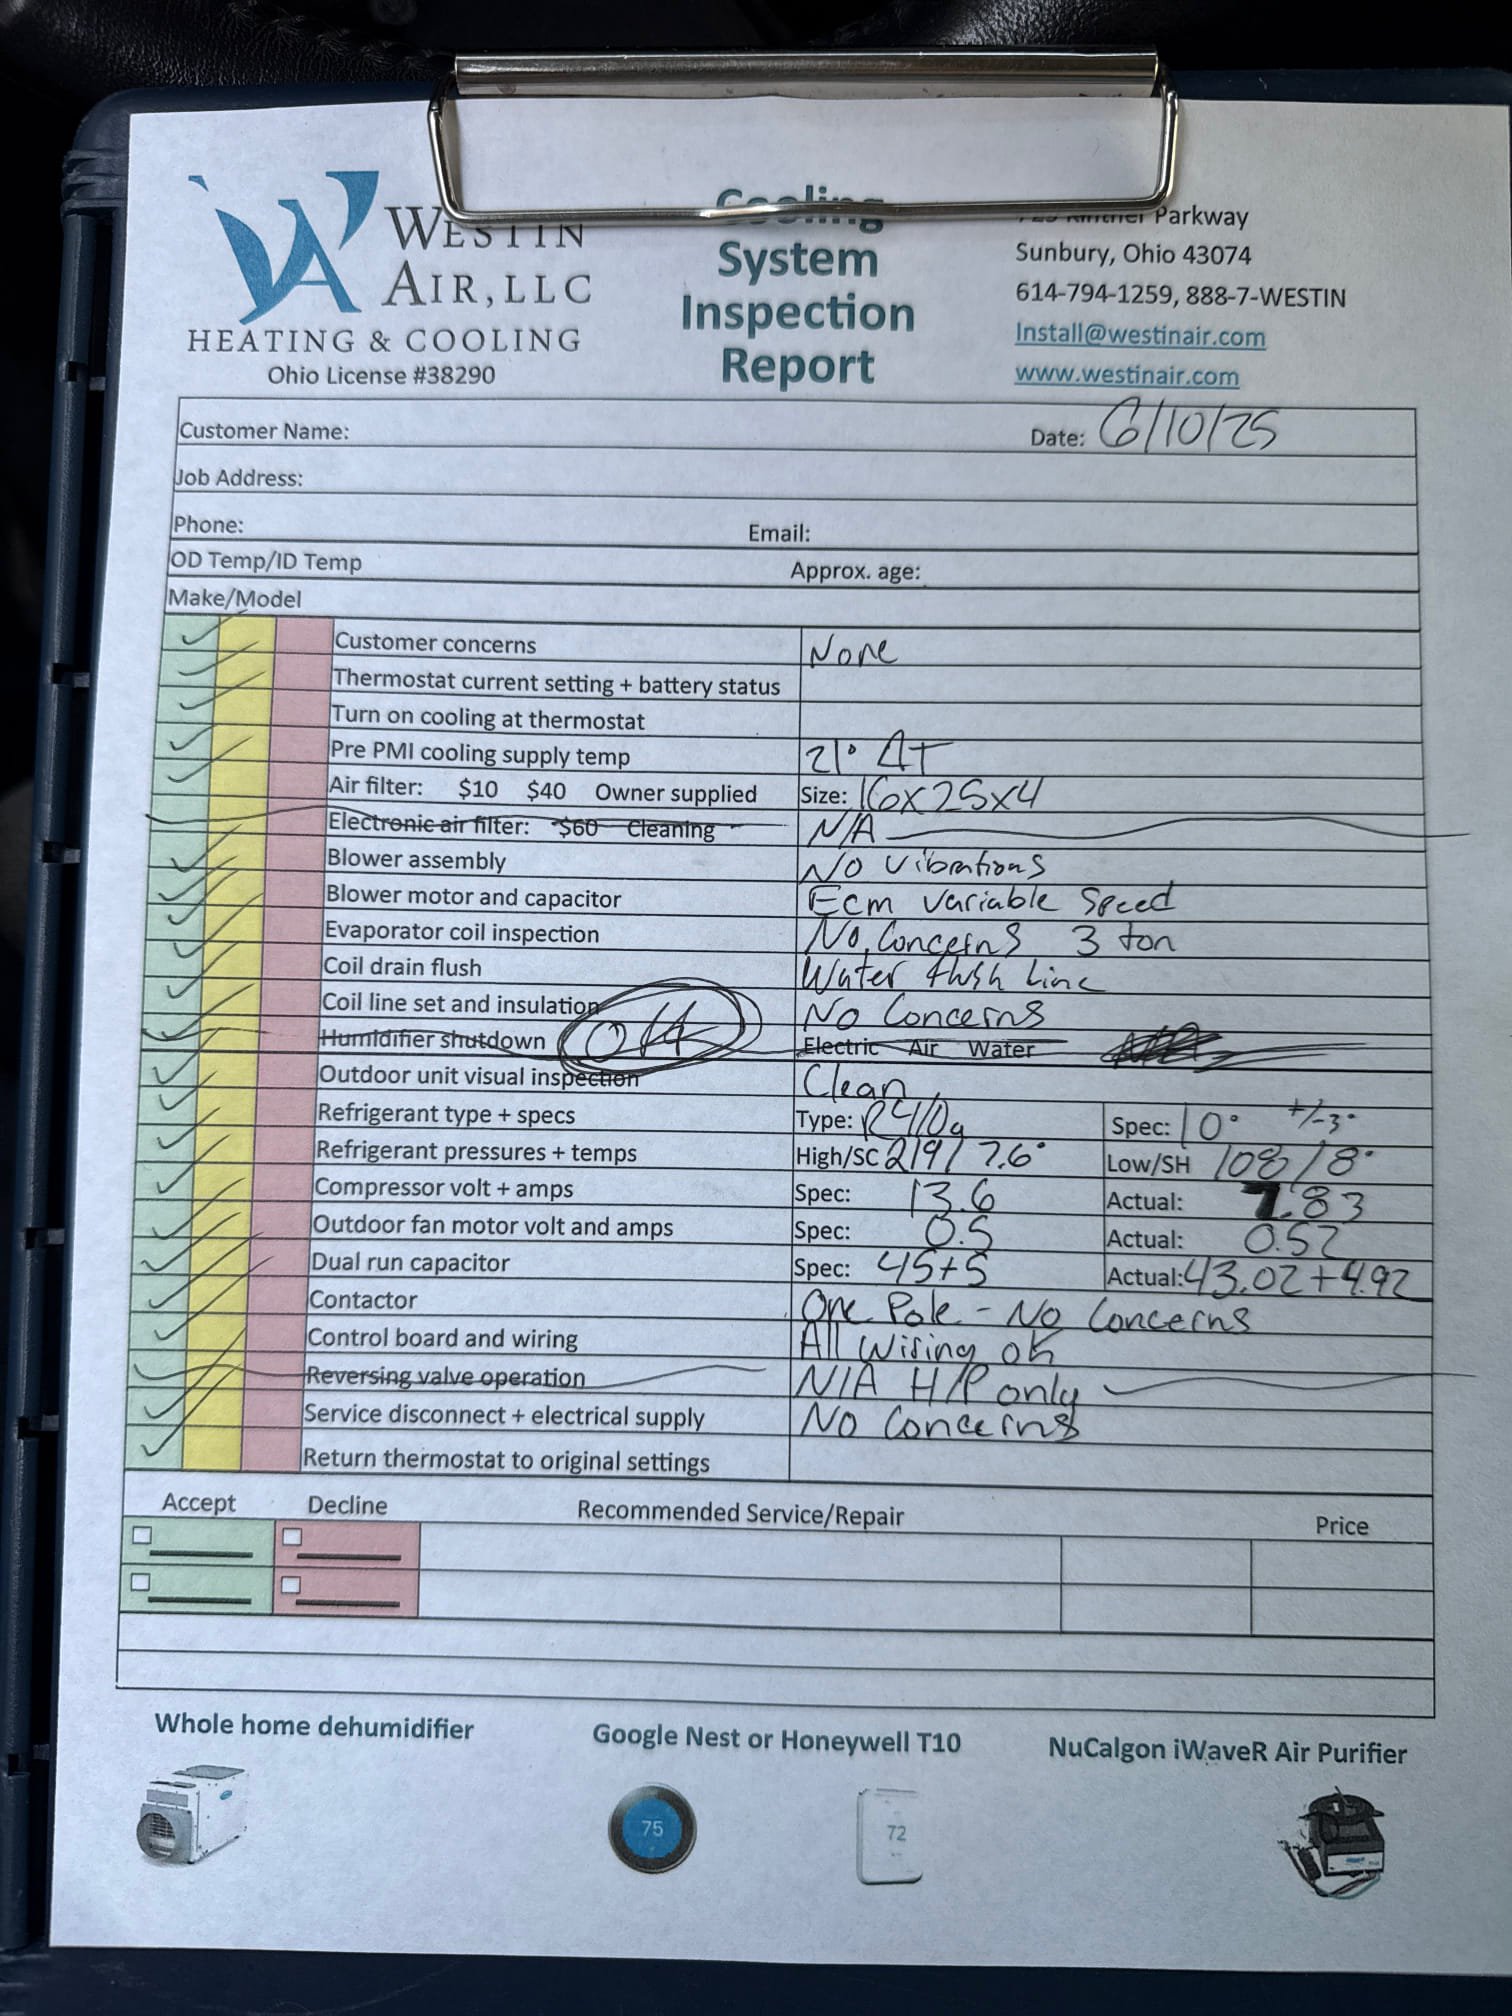 WESTIN
AIR, LLC
HEATING & COOLING
Ohio License #38290
Cooling
System
Inspection
Report
Parkway
Sunbury, Ohio 43074
614-794-1259, 888-7-WESTIN
Install@westinair.com
www.westinair.com
Customer Name: Date: 6/10/25
Job Address:
Phone: Email:
OD Temp/ID Temp Approx. age:
Make/Model
Customer concerns None
Thermostat current setting + battery status
Turn on cooling at thermostat
Pre PMI cooling supply temp 21° ΔT
Air filter: $10 $40 Owner supplied Size: 16x25x4
Electronic air filter: $60 Cleaning N/A
Blower assembly No Vibrations
Blower motor and capacitor Ecm Variable Speed
Evaporator coil inspection No Concerns 3 ton
Coil drain flush Water flush Line
Coil line set and insulation No Concerns
Humidifier shutdown Off Electric Air Water
Outdoor unit visual inspection Clean
Refrigerant type + specs Type: R410a Spec: 10° +/-3°
Refrigerant pressures + temps High/SC 219/7.6° Low/SH 108/8°
Compressor volt + amps Spec: 13.6 Actual: 7.83
Outdoor fan motor volt and amps Spec: 0.5 Actual: 0.52
Dual run capacitor Spec: 45+5 Actual: 43.02+4.92
Contactor One Pole - No Concerns
Control board and wiring All Wiring ok
Reversing valve operation N/A H/P only
Service disconnect + electrical supply No Concerns
Return thermostat to original settings
Accept Decline Recommended Service/Repair Price
Whole home dehumidifier Google Nest or Honeywell T10 NuCalgon iWaveR Air Purifier
75 72